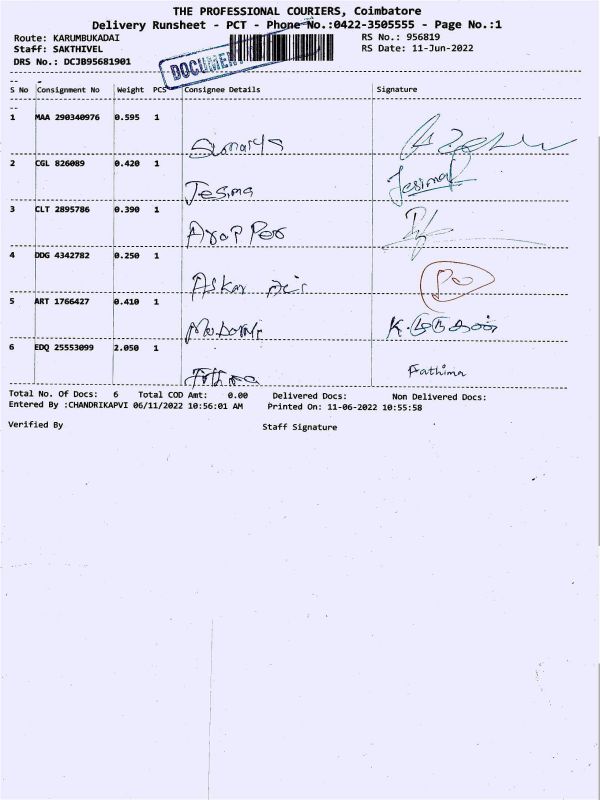 THE PROFESSIONAL COURIERS, Coimbatore
Delivery Runsheet - PCT - Phone No.:0422-3505555 - Page No.:1
Route: KARUMBUKADAI RS No.: 956819
Staff: SAKTHIVEL RS Date: 11-Jun-2022
DRS No.: DCJB95681901
DOCUMENT
S No Consignment No Weight PCS Consignee Details Signature
1 MAA 290340976 0.595 1
2 CGL 826089 0.420 1 Jesima Jesima
3 CLT 2895786 0.390 1
4 DDG 4342782 0.250 1 Askar
5 ART 1766427 0.410 1
6 EDQ 25553099 2.050 1 Fathima
Total No. Of Docs: 6 Total COD Amt: 0.00 Delivered Docs: Non Delivered Docs:
Entered By :CHANDRIKAPVI 06/11/2022 10:56:01 AM Printed On: 11-06-2022 10:55:58
Verified By Staff Signature